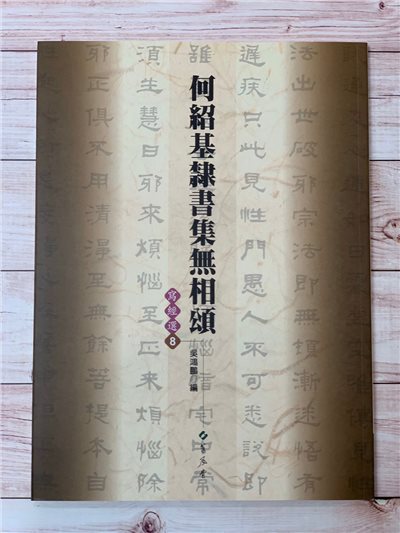 何紹基隸書集無相頌
寫經選8
吳鴻鵬 編
蕙風堂
法出世破邪宗法即無頓漸迷悟有
遲疾只此見性門愚人不可悉說即
雖
宅中常
須生慧日邪來煩惱至正來煩惱除
邪正俱不用清淨至無餘菩提本自